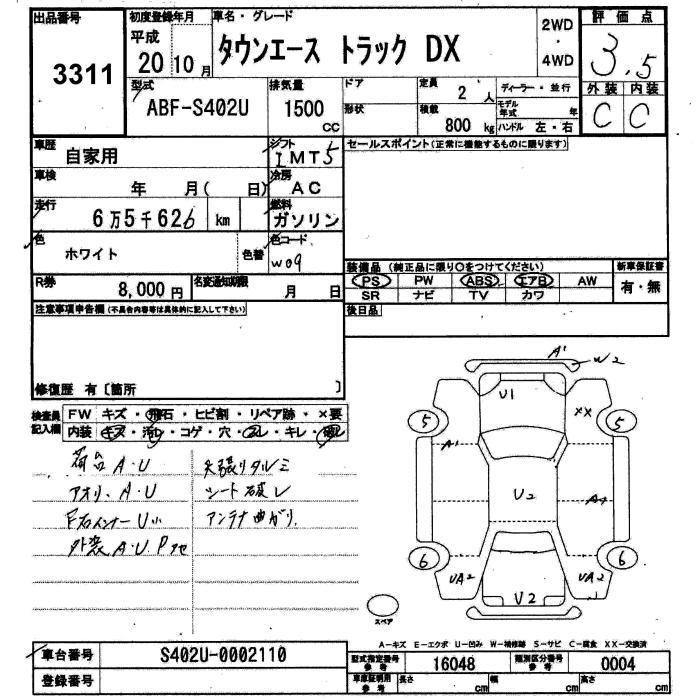 出品番号
3311
初度登録年月
平成
20 10月
車名・グレード
タウンエース トラック DX
2WD
・
4WD
評価点
3.5
外装 内装
C C
型式
ABF-S402U
排気量
1500
cc
ドア
形状
定員
2 人
積載
800 kg
ディーラー・並行
モデル年式 年
ハンドル 左・右
車歴
自家用
シフト
I MT5
セールスポイント(正常に機能するものに限ります)
車検
年 月( 日)
冷房
AC
走行
6万5千626 km
燃料
ガソリン
色
ホワイト
色替
色コード
W09
R券
8,000 円
名変通知期限
月 日
装備品 (純正品に限り○をつけてください)
新車保証書
PS PW ABS エアB AW
有・無
SR ナビ TV カワ
後日品
注意事項申告欄(不具合内容等は具体的に記入して下さい)
修復歴 有〔箇所 〕
検査員記入欄
FW キズ・飛石・ヒビ割・リペア跡・×要
内装 キズ・汚レ・コゲ・穴・スレ・キレ・破レ
荷台 A・U
天張りタルミ
アオリ、A・U
シート破レ
F右インナーU小
アンテナ曲がり
外装A・U P
A1
W2
U1
XX
5
5
A1
U2
A1
6
6
UA2
UA2
U2
スペア
A-キズ E-エクボ U-凹み W-補修跡 S-サビ C-腐食 XX-交換済
車台番号
S402U-0002110
登録番号
型式指定番号 参考
16048
類別区分番号 参考
0004
車庫証明用 参考
長さ cm
幅 cm
高さ cm